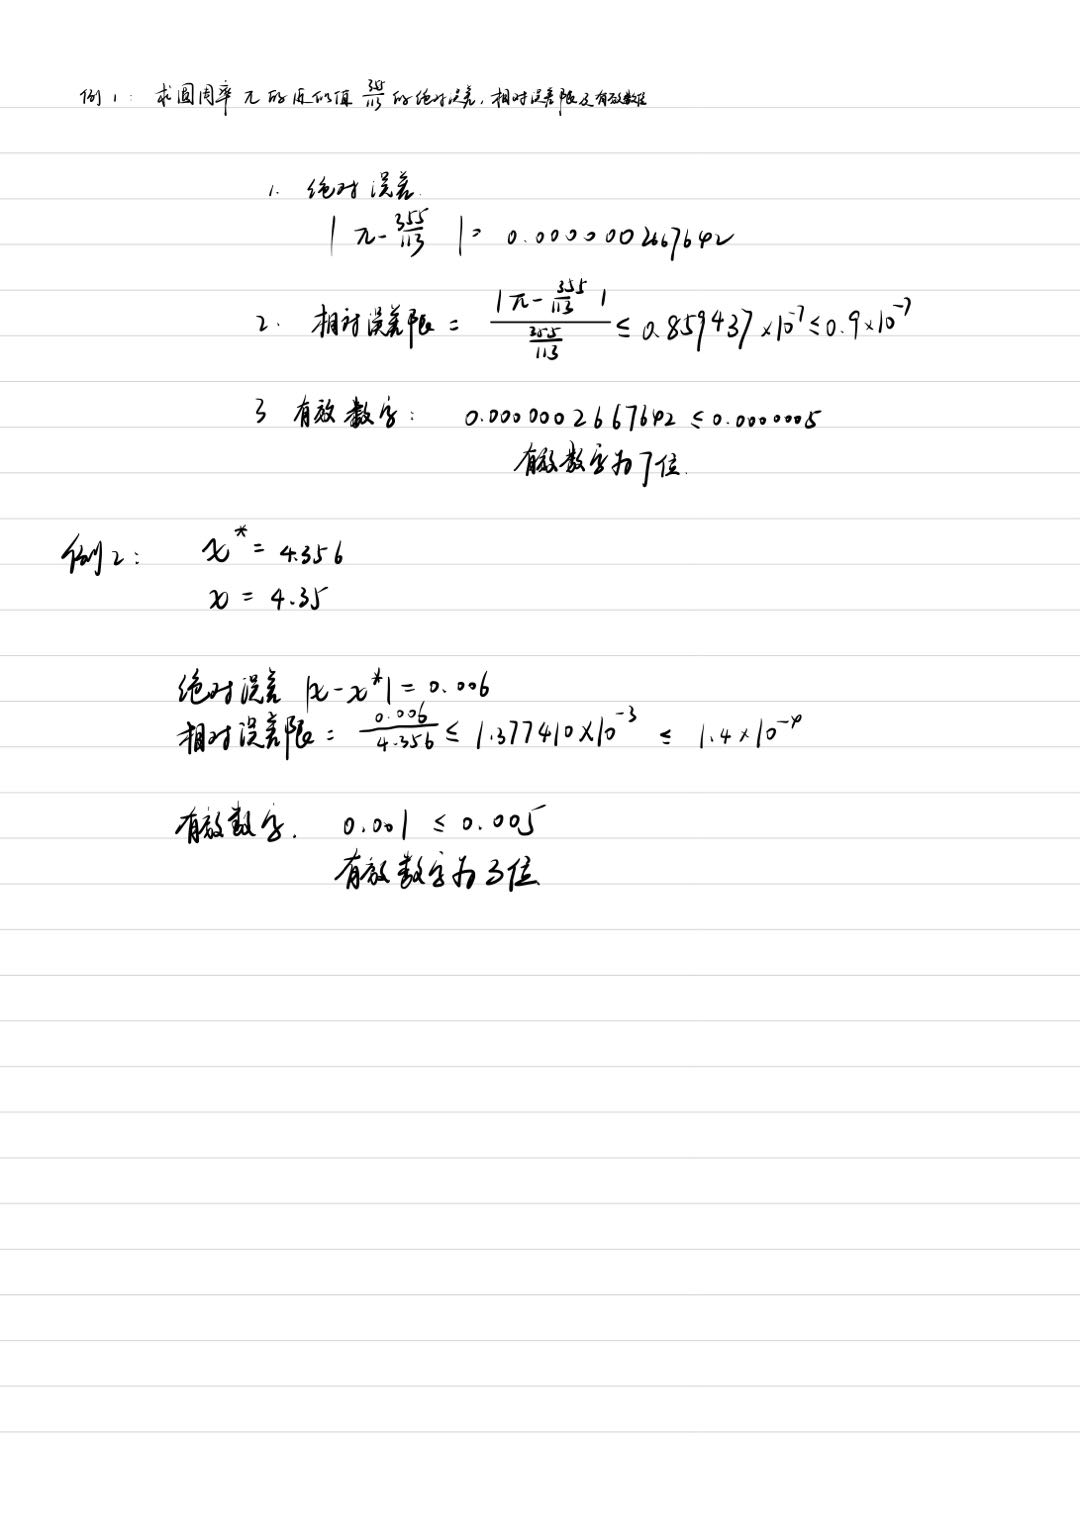 例1: 求圆周率π的近似值 355/113 的绝对误差,相对误差限及有效数位
1. 绝对误差.
|π-355/113| = 0.0000002667642
2. 相对误差限 = |π-355/113| / (355/113) ≤ 0.859437×10⁻⁷ ≤ 0.9×10⁻⁷
3 有效数字: 0.0000002667642 ≤ 0.0000005
有效数字为7位.
例2: x* = 4.356
x = 4.35
绝对误差 |x-x*| = 0.006
相对误差限 = 0.006/4.356 ≤ 1.377410×10⁻³ ≤ 1.4×10⁻⁴
有效数字. 0.001 ≤ 0.005
有效数字为3位